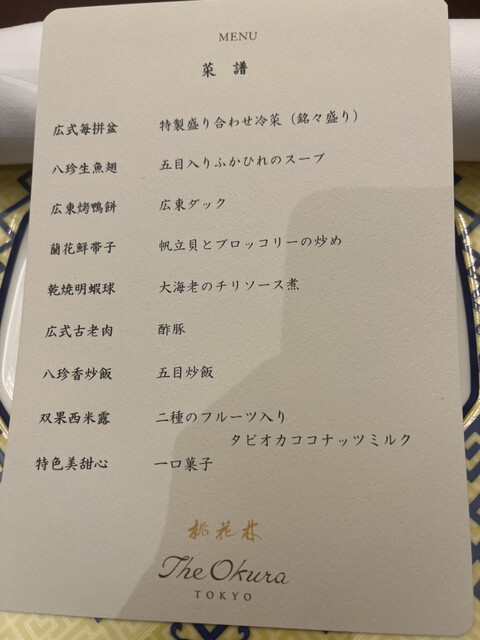 MENU
菜 譜
広式毎拼盆 特製盛り合わせ冷菜（銘々盛り）
八珍生魚翅 五目入りふかひれのスープ
広東烤鴨餅 広東ダック
蘭花鮮帯子 帆立貝とブロッコリーの炒め
乾焼明蝦球 大海老のチリソース煮
広式古老肉 酢豚
八珍香炒飯 五目炒飯
双果西米露 二種のフルーツ入り
タピオカココナッツミルク
特色美甜心 一口菓子
桃花林
The Okura
TOKYO